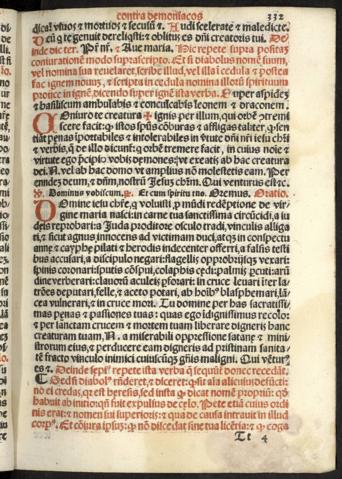 contra demoniacos 332
dica: viuos & mortuos & seculũ &. Audi scelerate & maledicte.
Dũ q̃ te genuit dereliq̃sti: & oblitus es dñi creatoris tui. De
inde dic ter. Pr̃ nr̃. & Aue maria. Hic repete supra positas
coniurationẽ modo suprascripto. Et si diabolus nomẽ suum,
vel nomina sua reuelaret, scribe illud, vel illa ĩ cedula & postea
fac ignem nouũ, & scripta in cedula nomina illorũ spirituum
proijce in ignẽ, dicendo super ignẽ ista verba. Super aspidez
& basiliscum ambulabis & conculcabis leonem & draconem.
Coniuro te creatura ✠ ignis per illum, qui orbẽ tremi
scere facit: q̃ istos spũs cõburas & affligas taliter, q̃ sen
tiãt penas ĩportabiles & intolerabiles in v̓tute dñi nr̃i iesu chr̃i
& verbis, q̃ de illo dicunt: q̃ orbẽ tremere facit, in cuius noĩe &
virtute ego p̃cipio vobis demones: vt exeatis ab hac creatura
dei. N. vel ab hac domo vt amplius nõ molestetis eam. Per
eundẽz deum, & dñm, nostrũ Jesuz chr̃m. Qui venturus est &c.
℣. Dominus vobiscum. ℟. Et cum spiritu tuo. Oremus. Oratio.
Domine iesu chr̃e, q̃ voluisti p̃ mũdi redẽptione de vir
gine maria nasci: in carne tua sanctissima circũcidi, a iu
deis reprobari: a Juda proditore osculo tradi, vinculis alliga
ri, & sicut agnus innocens ad victimam duci, atq̃ in conspectu
anne & cayphe pilati & herodis indecenter offerri, a falsis testi
bus accusari, a discipulo negari: flagellis, opprobrijsq̃ vexari:
spinis coronari: sputis cõspui, colaphis cedi: palmis p̃cuti: arũ
dine verberari: clauorũ aculeis p̃forari: in cruce leuari: ĩter la
trões deputari, felle, & aceto potari, ab hoĩbus blasphemari, lã
cea vulnerari, & in cruce mori. Tu domine per has sacratissi
mas penas & passiones tuas: quas ego ĩdignissimus recolo:
& per sanctam crucem & mortem tuam liberare digneris hanc
creaturam tuam .N. a miserabili oppressione satane & mini
strorum eius, & perducere eam digneris ad pristinam sanita
tẽ fracto vinculo inimici cuiuscũq̃ gñis maligni. Qui vẽtur⁹
es &. Deinde sepi⁹ repete ista verba q̃ sequũt donec recedãt.
¶ Sed si diabol⁹ rñderet, & diceret: q̃ sit aĩa alicuius defũcti:
nõ ei credas, qr̃ est heresis, sed insta q̃ dicat nomẽ propriũ: q̃d
habuit ab initio: qñ fuit expulsus de celo. Pete etiã cuius ordi
nis erat: & nomen sui superioris: & qua de causa intrauit in illud
corp⁹. Et cõiura ipsuz: q̃ nõ discedat sine tua licẽtia: & q̃ coga
Tt 4